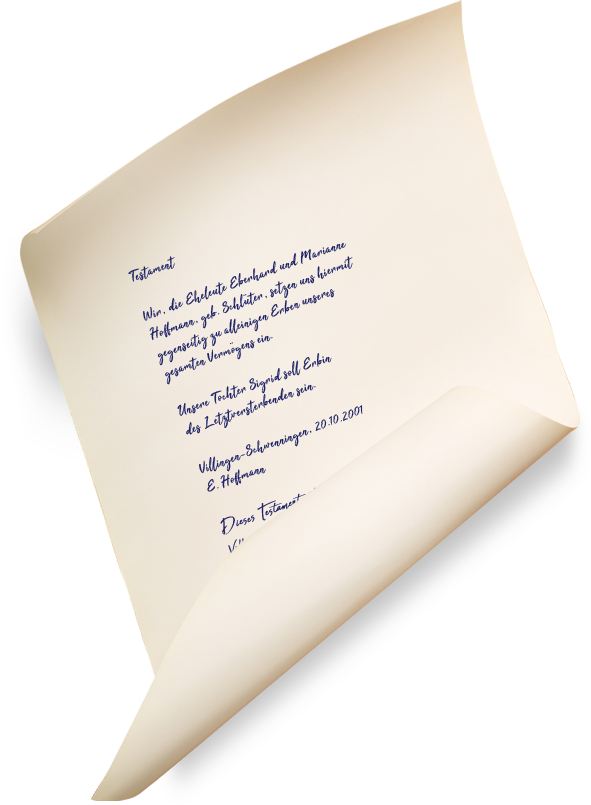 Testament
Wir, die Eheleute Eberhard und Marianne
Hoffmann, geb. Schlüter, setzen uns hiermit
gegenseitig zu alleinigen Erben unseres
gesamten Vermögens ein.
Unsere Tochter Sigrid soll Erbin
des Letztversterbenden sein.
Villingen-Schwenningen, 20.10.2001
E. Hoffmann
Dieses Testament